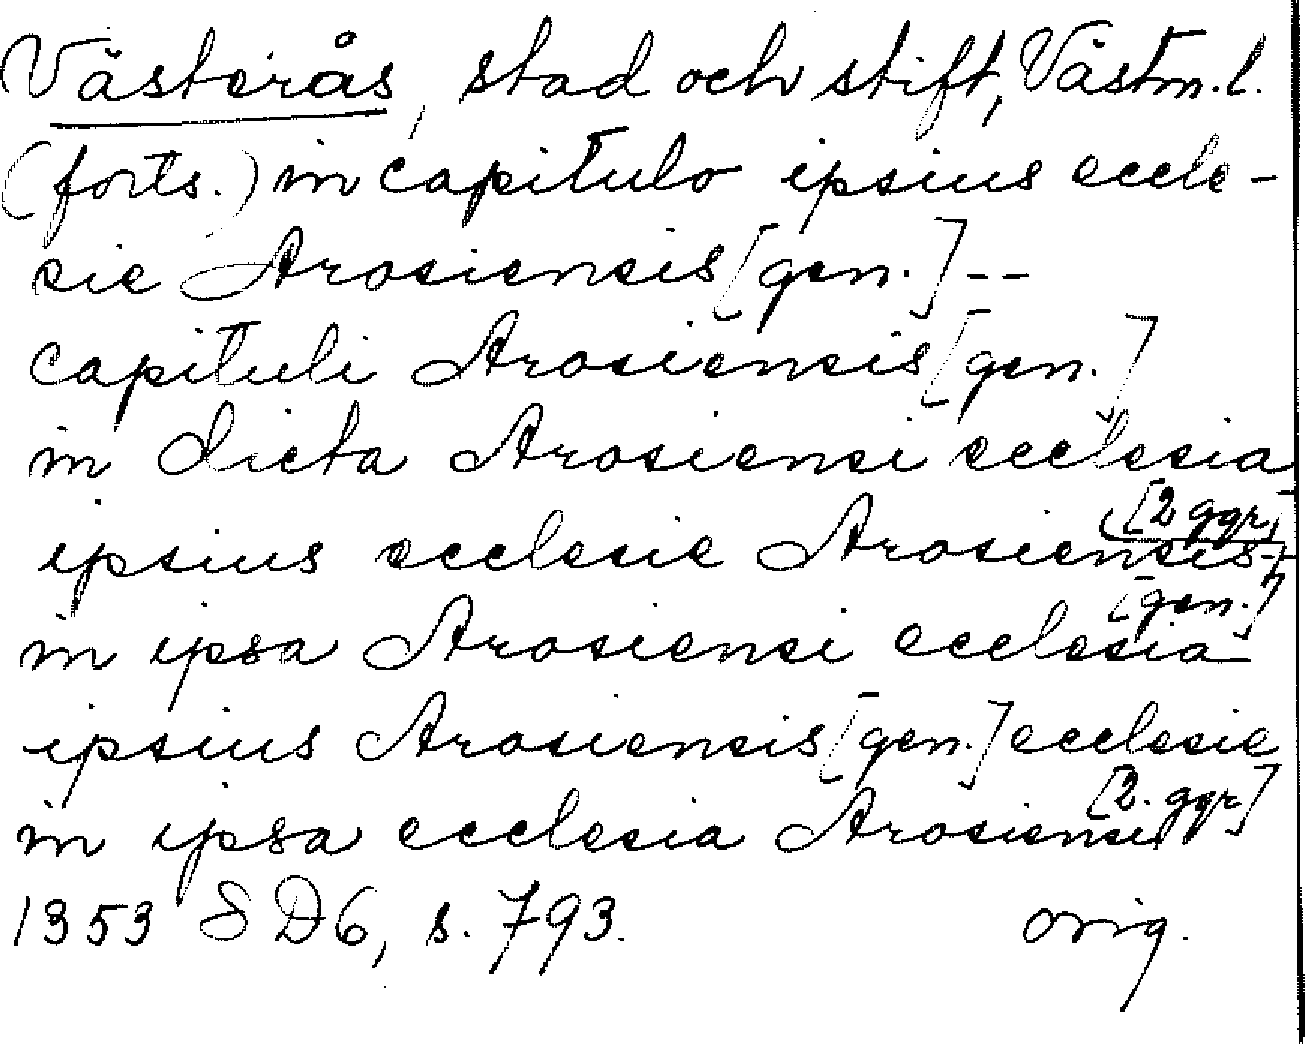 Västerås, stad och stift, Västm. l.
(forts.) in capitulo ipsius eccle-
sie Arosiensis [gen.] --
capituli Arosiensis [gen.]
in dicta Arosiensi ecclesia
ipsius ecclesie Arosiensis [2 ggr]
[gen.]
in ipsa Arosiensi ecclesia
ipsius Arosiensis [gen.] ecclesie
in ipsa ecclesia Arosiensi [2. ggr]
1353 SD6, s. 793. orig.